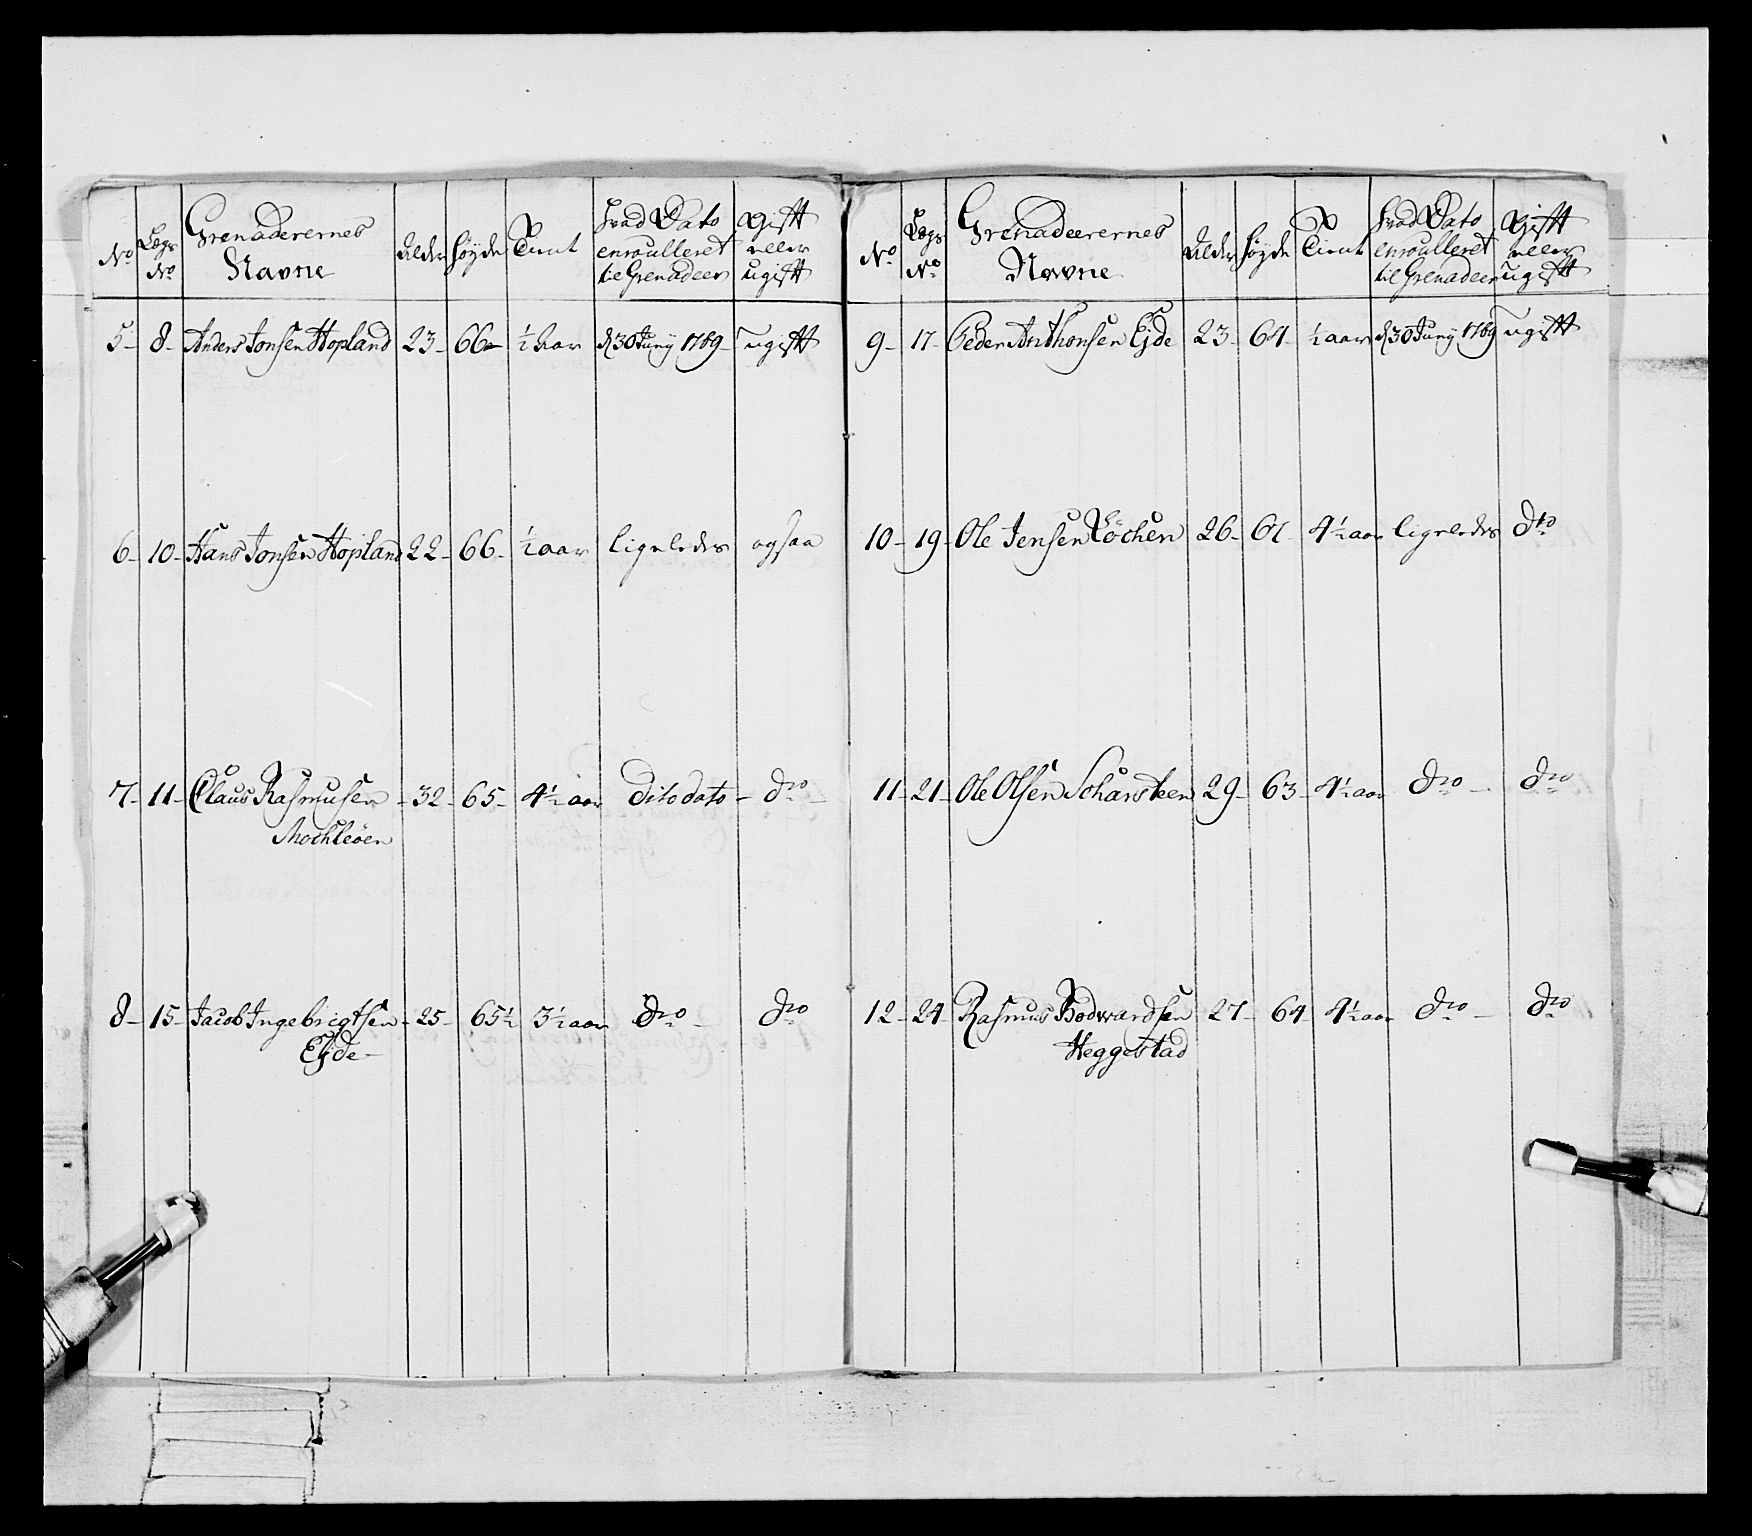 No
Lægs No
Grenaderernes Navne
Alder
Høyde
Tient
hvad Dato enroulleret til Grenadeer
Gift eller ugift
5- 8- Anders Jonsen Hopland 23- 66- ½ aar d 30 Juny 1789- ugift
6- 10- Hans Jonsen Hopland 22- 66- ½ aar ligeledes ogsaa
7- 11- Claus Rasmusen - 32- 65- 4½ aar dito dato - dto
Mochleöen
8- 15- Jacob Ingebrigtsen - 25- 65½ 3½ aar dto - dto
Ejde-
No
Lægs No
Grenadeerernes Navne
Alder
Høyde
Tient
hvad Dato enroulleret til Grenadeer
Gift eller ugift
9- 17- Peder Anthonsen Ejde 23- 64- ½ aar d 30 Juny 1789 ugift
10- 19- Ole Jensen Löchen 26- 61- 4½ aar ligeledes dto
11- 21- Ole Olsen Scharsteen 29- 63- 4½ aar dto - dto
12- 24- Rasmus Bodwardsen 27- 64 4½ aar dto - dto
Heggestad